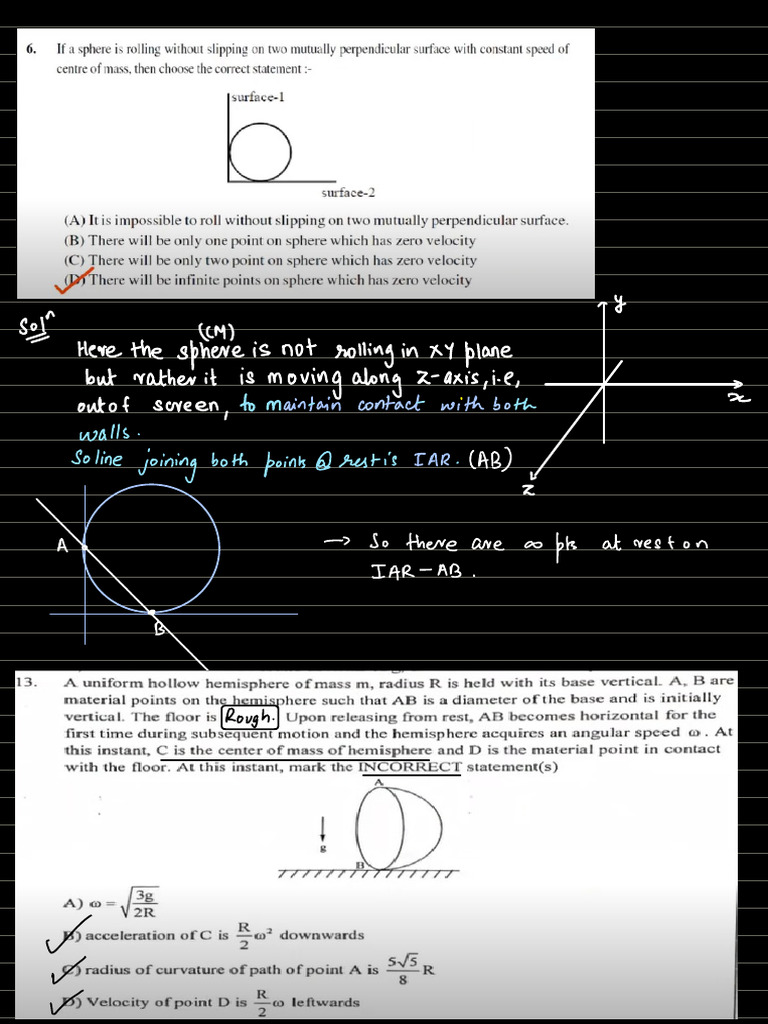 6. If a sphere is rolling without slipping on two mutually perpendicular surface with constant speed of
centre of mass, then choose the correct statement :-
surface-1
surface-2
(A) It is impossible to roll without slipping on two mutually perpendicular surface.
(B) There will be only one point on sphere which has zero velocity
(C) There will be only two point on sphere which has zero velocity
(D) There will be infinite points on sphere which has zero velocity
Solⁿ
(CM)
Here the sphere is not rolling in xy plane
but rather it is moving along z-axis, i.e,
out of screen, to maintain contact with both
walls.
So line joining both points @ rest is IAR. (AB)
y
x
z
A
B
→ So there are ∞ pts at rest on
IAR-AB.
13. A uniform hollow hemisphere of mass m, radius R is held with its base vertical. A, B are
material points on the hemisphere such that AB is a diameter of the base and is initially
vertical. The floor is Rough. Upon releasing from rest, AB becomes horizontal for the
first time during subsequent motion and the hemisphere acquires an angular speed ω. At
this instant, C is the center of mass of hemisphere and D is the material point in contact
with the floor. At this instant, mark the INCORRECT statement(s)
A
g
B
A) ω = √(3g/2R)
B) acceleration of C is R/2 ω² downwards
C) radius of curvature of path of point A is 5√5/8 R
D) Velocity of point D is R/2 ω leftwards